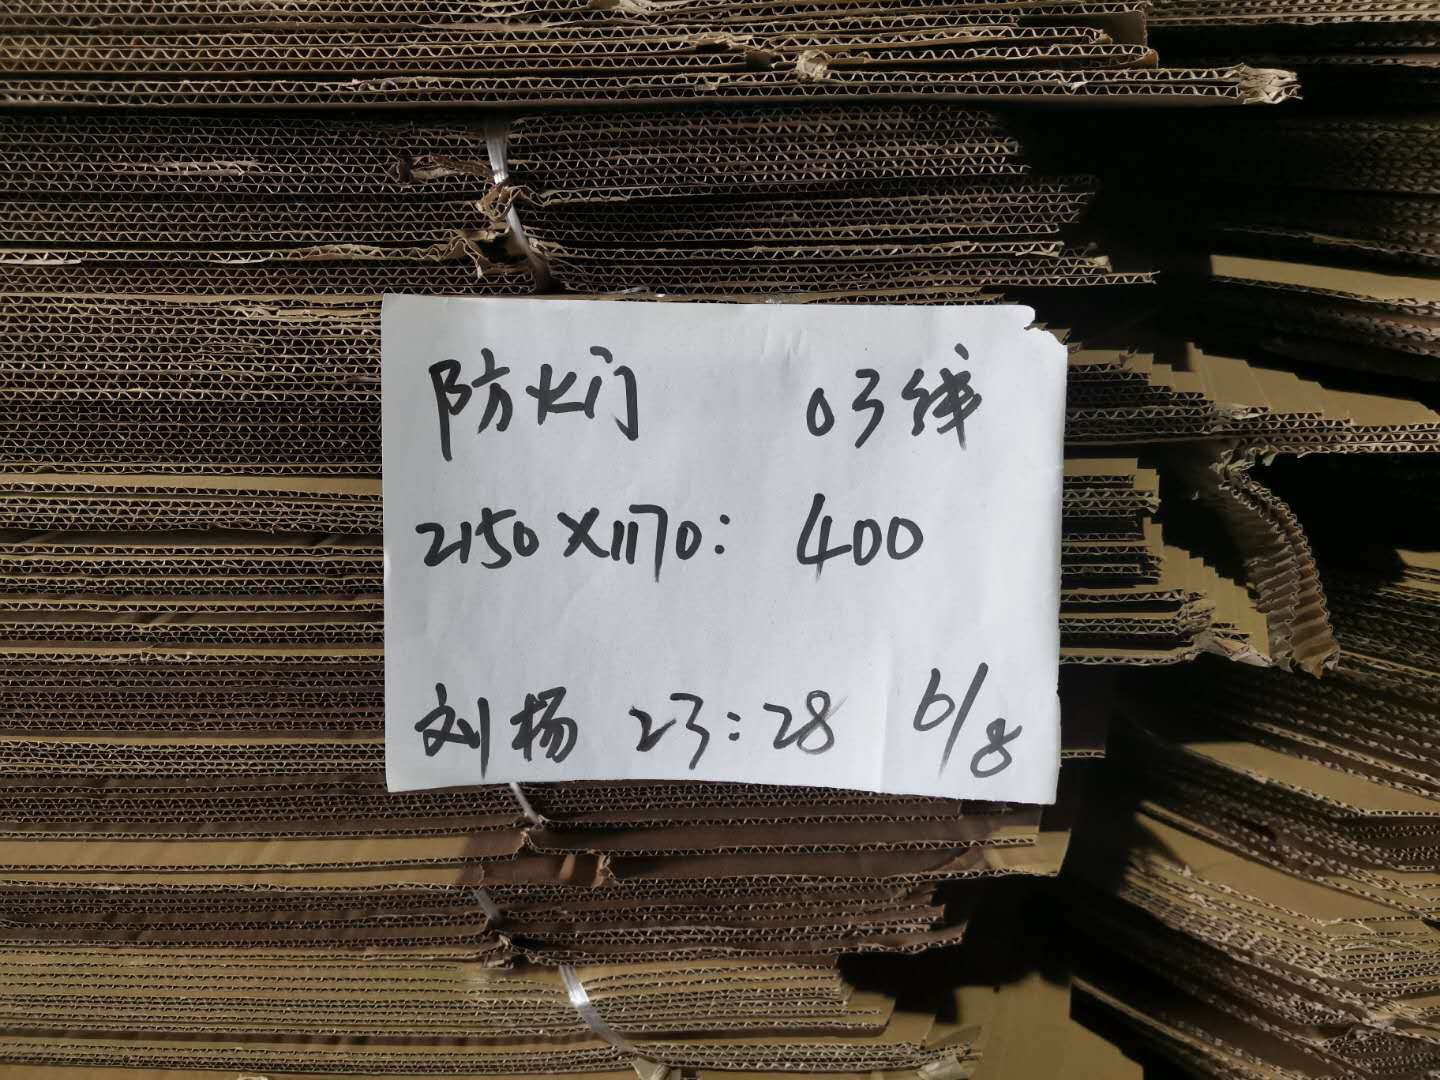 防火门 03线
2150X1170: 400
刘杨 23:28 6/8